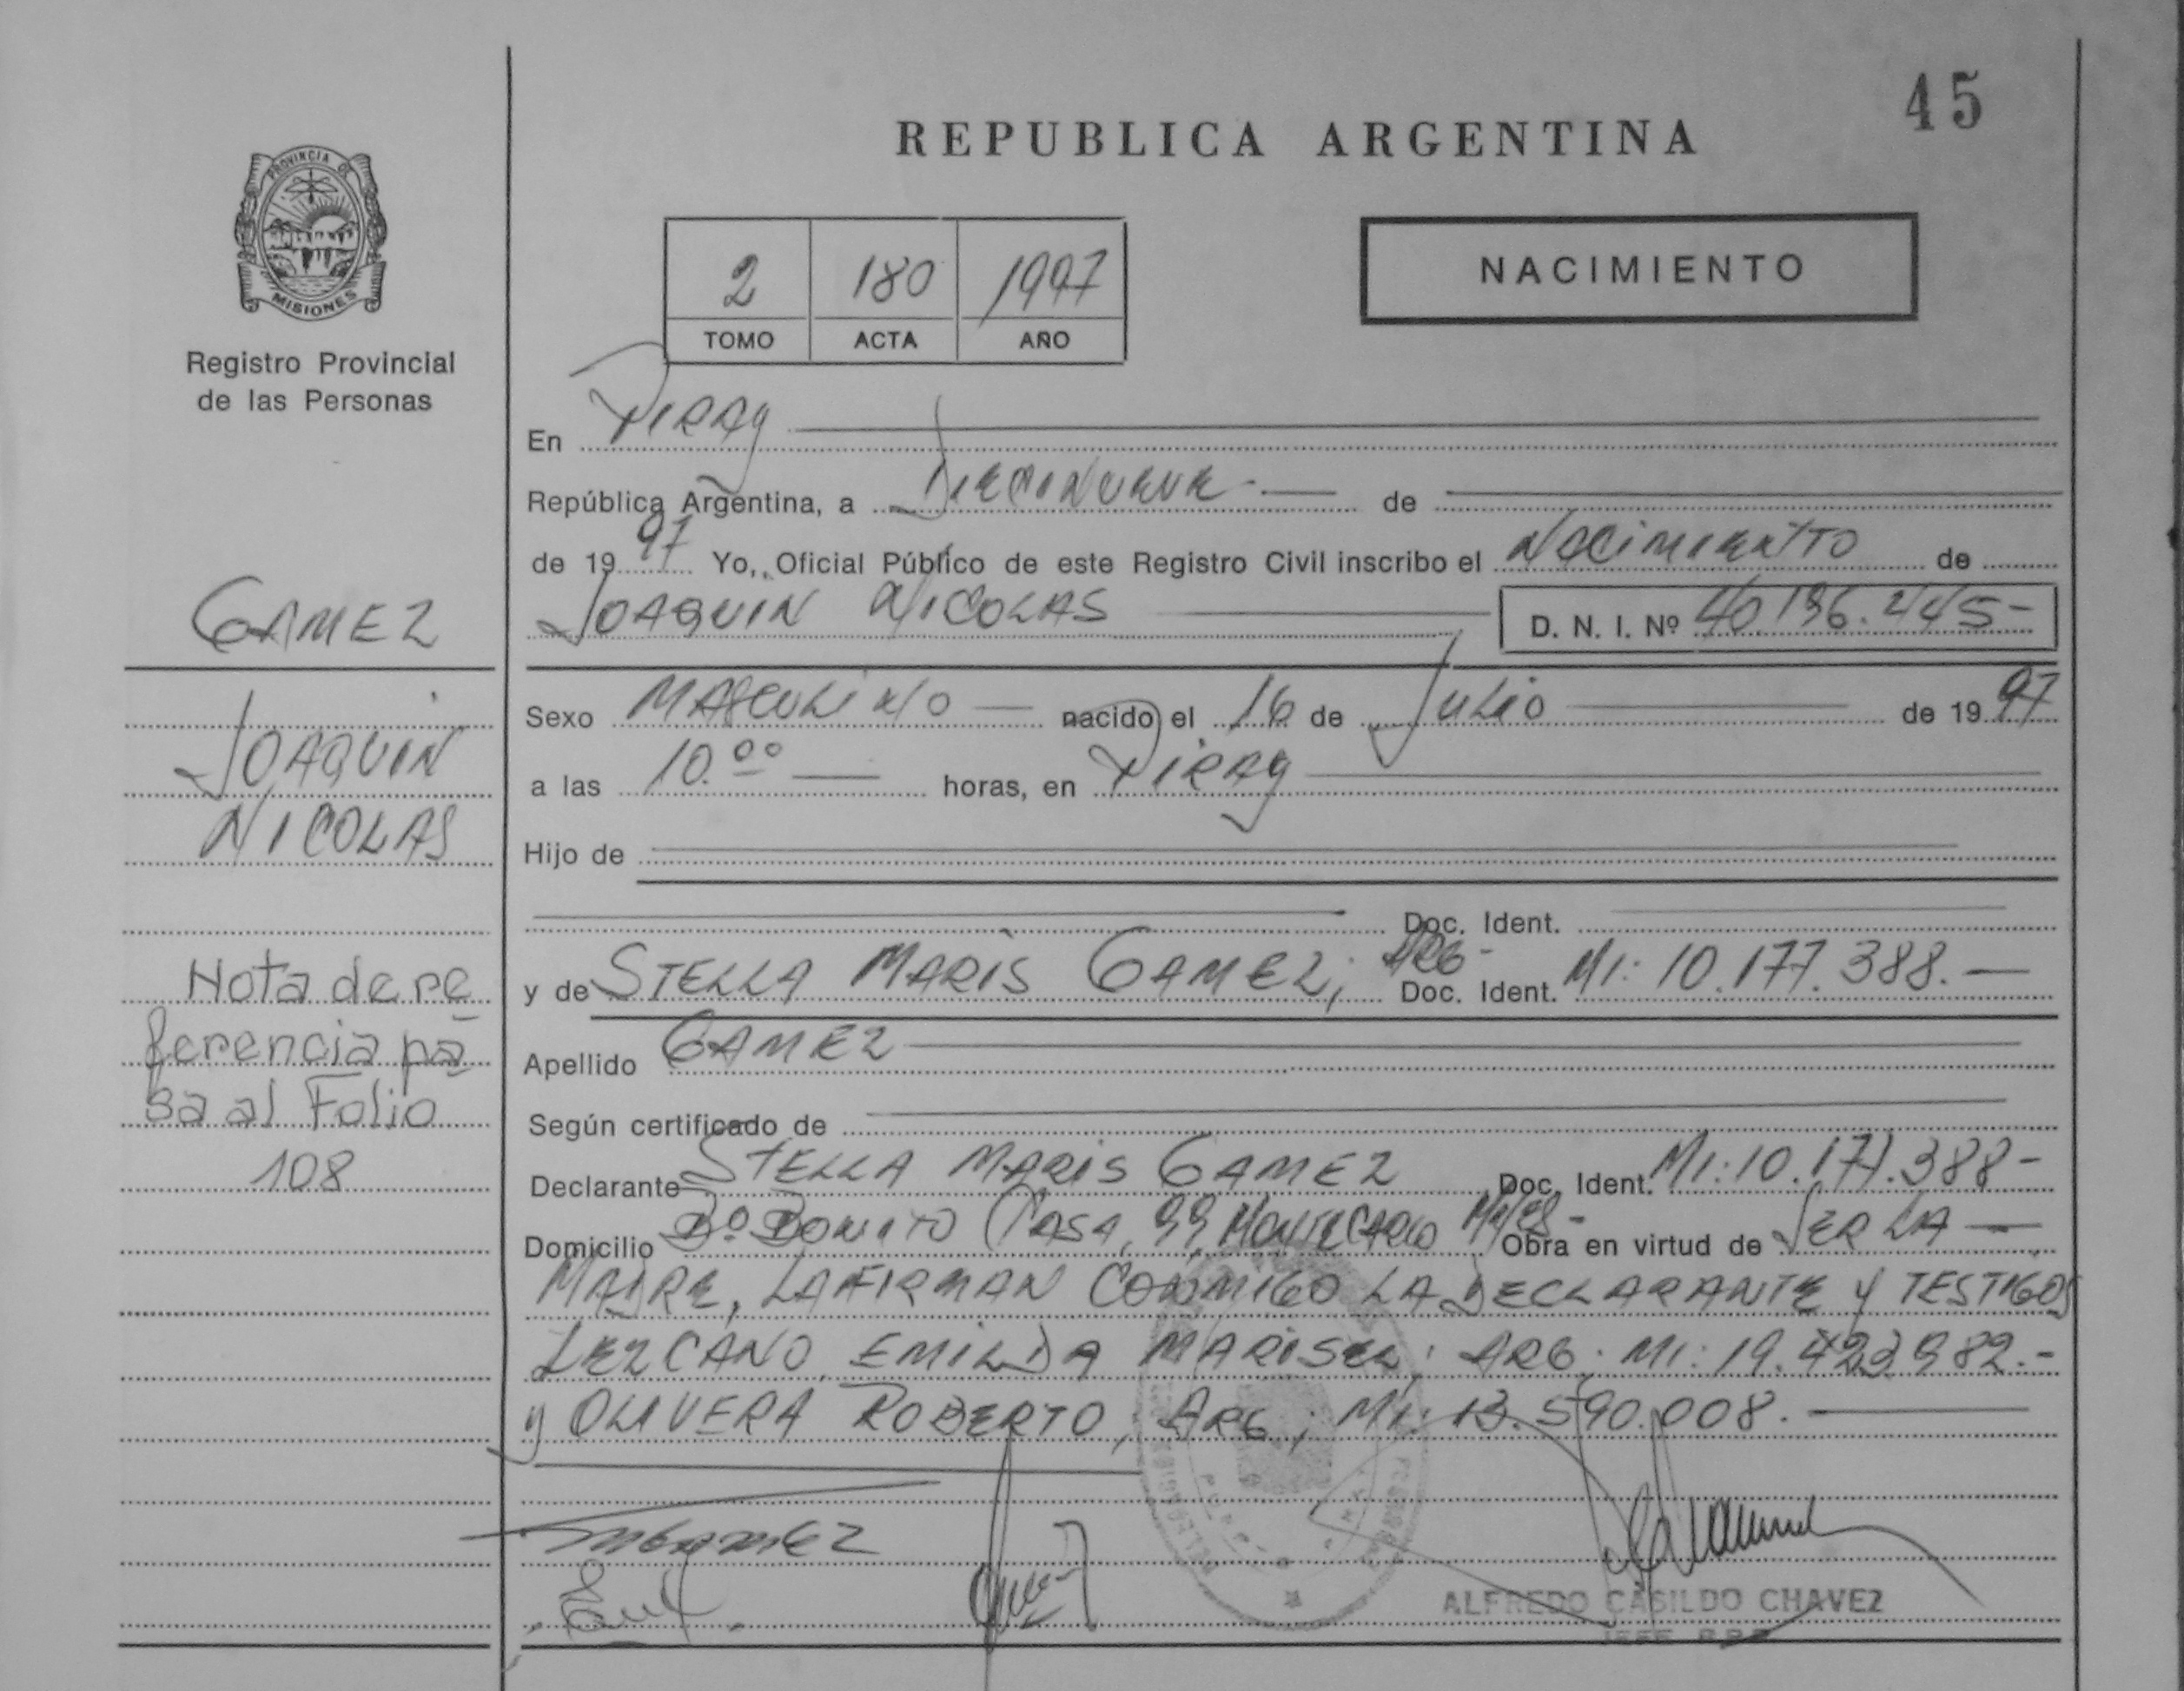 45
REPUBLICA ARGENTINA
PROVINCIA DE
MISIONES
Registro Provincial
de las Personas
2 180 1997
TOMO ACTA AÑO
NACIMIENTO
En PIRAY
República Argentina, a DIECINUEVE.— de
de 19 97 Yo, Oficial Público de este Registro Civil inscribo el NACIMIENTO de
JOAQUIN NICOLAS D. N. I. Nº 40.196.445-
Sexo MASCULINO — nacido el 16 de JULIO de 19 97
a las 10.00 — horas, en PIRAY
Hijo de
Doc. Ident.
y de STELLA MARIS GAMEZ; ARG- Doc. Ident. MI: 10.177.388.—
Apellido GAMEZ
Según certificado de
Declarante STELLA MARIS GAMEZ Doc. Ident. MI: 10.177.388-
Domicilio Bº BONITO CASA, 99 MONTECARLO Obra en virtud de SER LA —
MADRE, LA FIRMAN CONMIGO LA DECLARANTE Y TESTIGOS
LEZCANO EMILDA MARISEL; ARG. MI: 19.423.982.-
y OLIVERA ROBERTO, ARG; MI: 13.590.008.
ALFREDO CASILDO CHAVEZ
JEFE
GAMEZ
JOAQUIN
NICOLAS
Nota de re
ferencia pa
sa al Folio
108